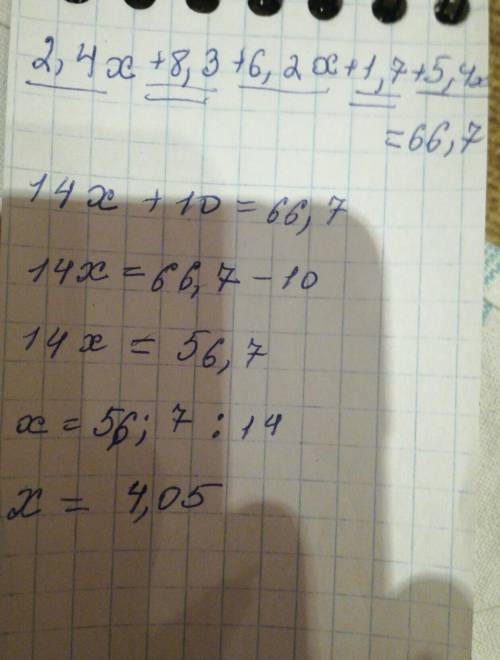 2,4x+8,3+6,2x+1,7+5,4x
=66,7
14x+10=66,7
14x=66,7-10
14x=56,7
x=56;7:14
x=4,05